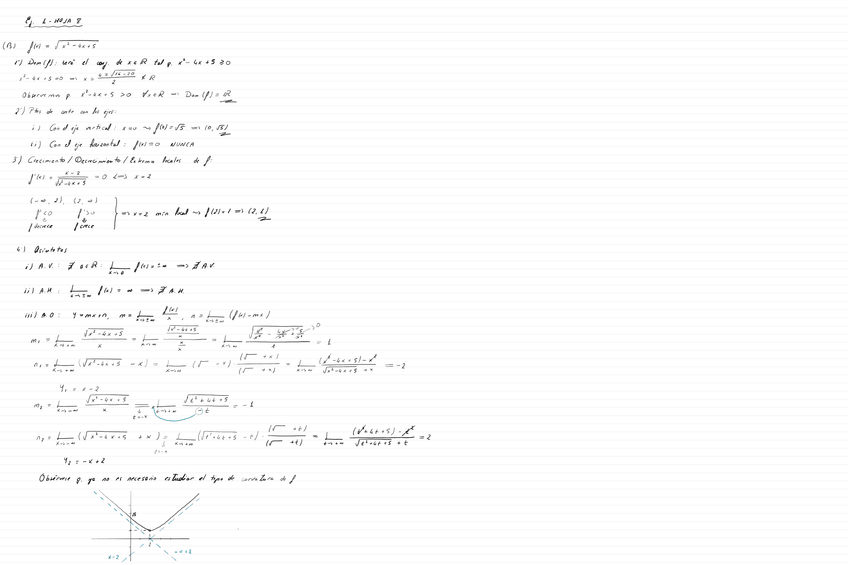 Ej. 6 - HOJA 8
(B) f(x) = √(x² - 4x + 5)
1º) Dom(f): será el conj. de x ∈ ℝ tal q. x² - 4x + 5 ≥ 0
x² - 4x + 5 = 0 ⇒ x = (4 ± √(16 - 20))/2 ∉ ℝ
Observemos q. x² - 4x + 5 > 0 ∀x ∈ ℝ ⇒ Dom(f) = ℝ
2º) Ptos de corte con los ejes:
i) Con el eje vertical: x = 0 ⇒ f(0) = √5 ⇒ (0, √5)
ii) Con el eje horizontal: f(x) = 0 NUNCA
3º) Crecimiento / Decrecimiento / Extremos locales de f:
f'(x) = (x - 2)/√(x² - 4x + 5) = 0 ⟺ x = 2
(-∞, 2), (2, ∞)
f' < 0 f' > 0 ⇒ x = 2 min local ⇒ f(2) = 1 ⇒ (2, 1)
f decrece f crece
4º) Asíntotas
i) A.V.: ∄ a ∈ ℝ: lim x→a f(x) = ±∞ ⇒ ∄ A.V.
ii) A.H.: lim x→±∞ f(x) = ∞ ⇒ ∄ A.H.
iii) A.O: y = mx + n, m = lim x→±∞ f(x)/x, n = lim x→±∞ (f(x) - mx)
m₁ = lim x→+∞ √(x² - 4x + 5)/x = lim x→+∞ (√(x² - 4x + 5)/x)/(x/x) = lim x→+∞ √(x²/x² - 4x/x² + 5/x²)/1 = 1
n₁ = lim x→+∞ (√(x² - 4x + 5) - x) = lim x→+∞ (√ - x) · (√ + x)/(√ + x) = lim x→+∞ ((x² - 4x + 5) - x²)/(√(x² - 4x + 5) + x) = -2
y₁ = x - 2
m₂ = lim x→-∞ √(x² - 4x + 5)/x = lim t→+∞ √(t² + 4t + 5)/-t = -1
n₂ = lim x→-∞ (√(x² - 4x + 5) + x) = lim t→+∞ (√(t² + 4t + 5) - t) · (√ + t)/(√ + t) = lim t→+∞ ((t² + 4t + 5) - t²)/(√(t² + 4t + 5) + t) = 2
y₂ = -x + 2
Obsérvese q. ya no es necesario estudiar el tipo de curvatura de f
√5
2
x-2 -x+2